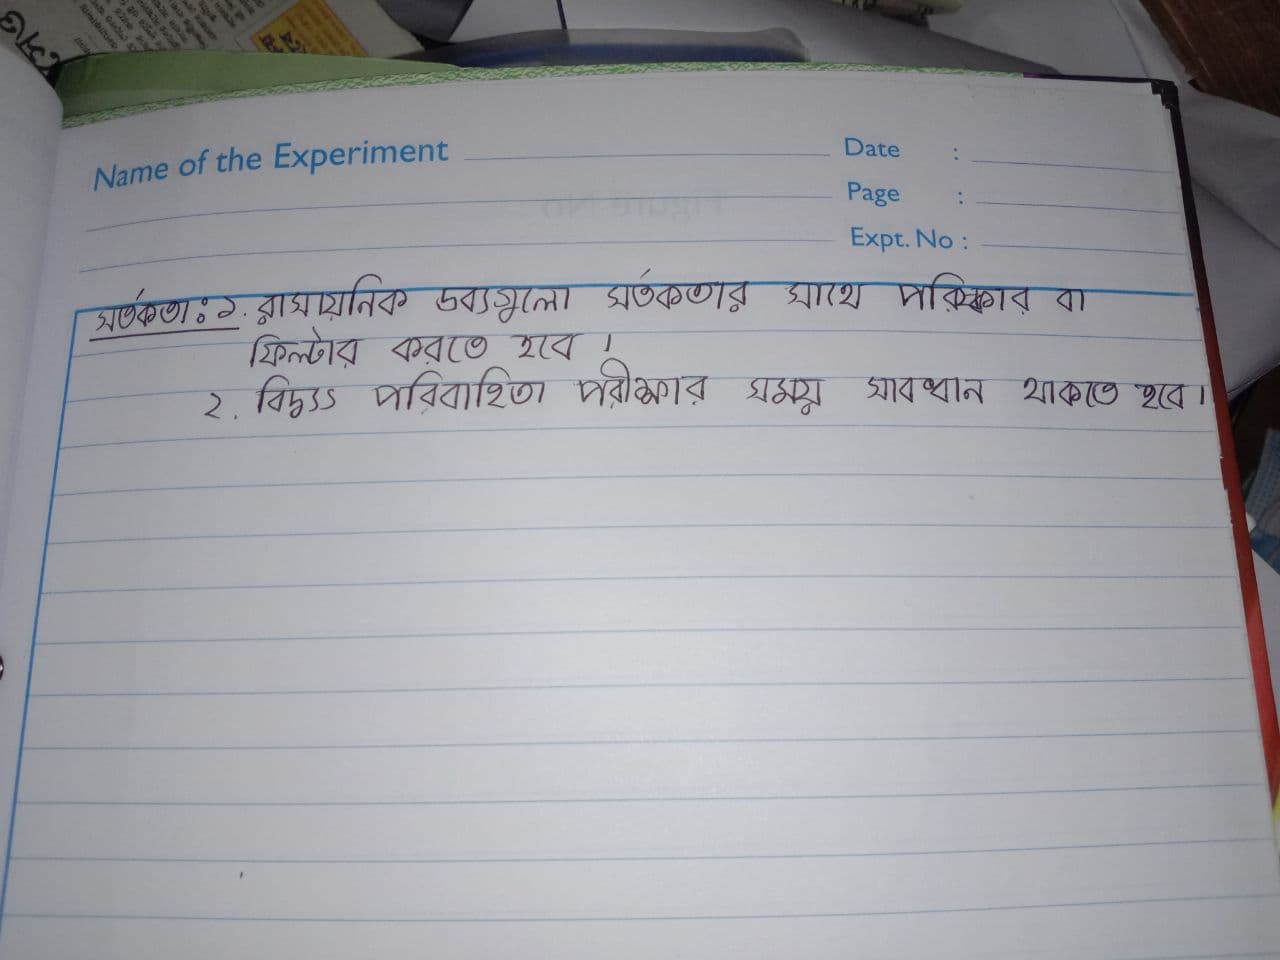 Name of the Experiment
Date :
Page :
Expt. No :
সর্তকতাঃ ১. রাসায়নিক দ্রব্যগুলো সর্তকতার সাথে পরিষ্কার বা
ফিল্টার করতে হবে ।
২. বিদ্যুৎ পরিবাহিতা পরীক্ষার সময় সাবধান থাকতে হবে ।